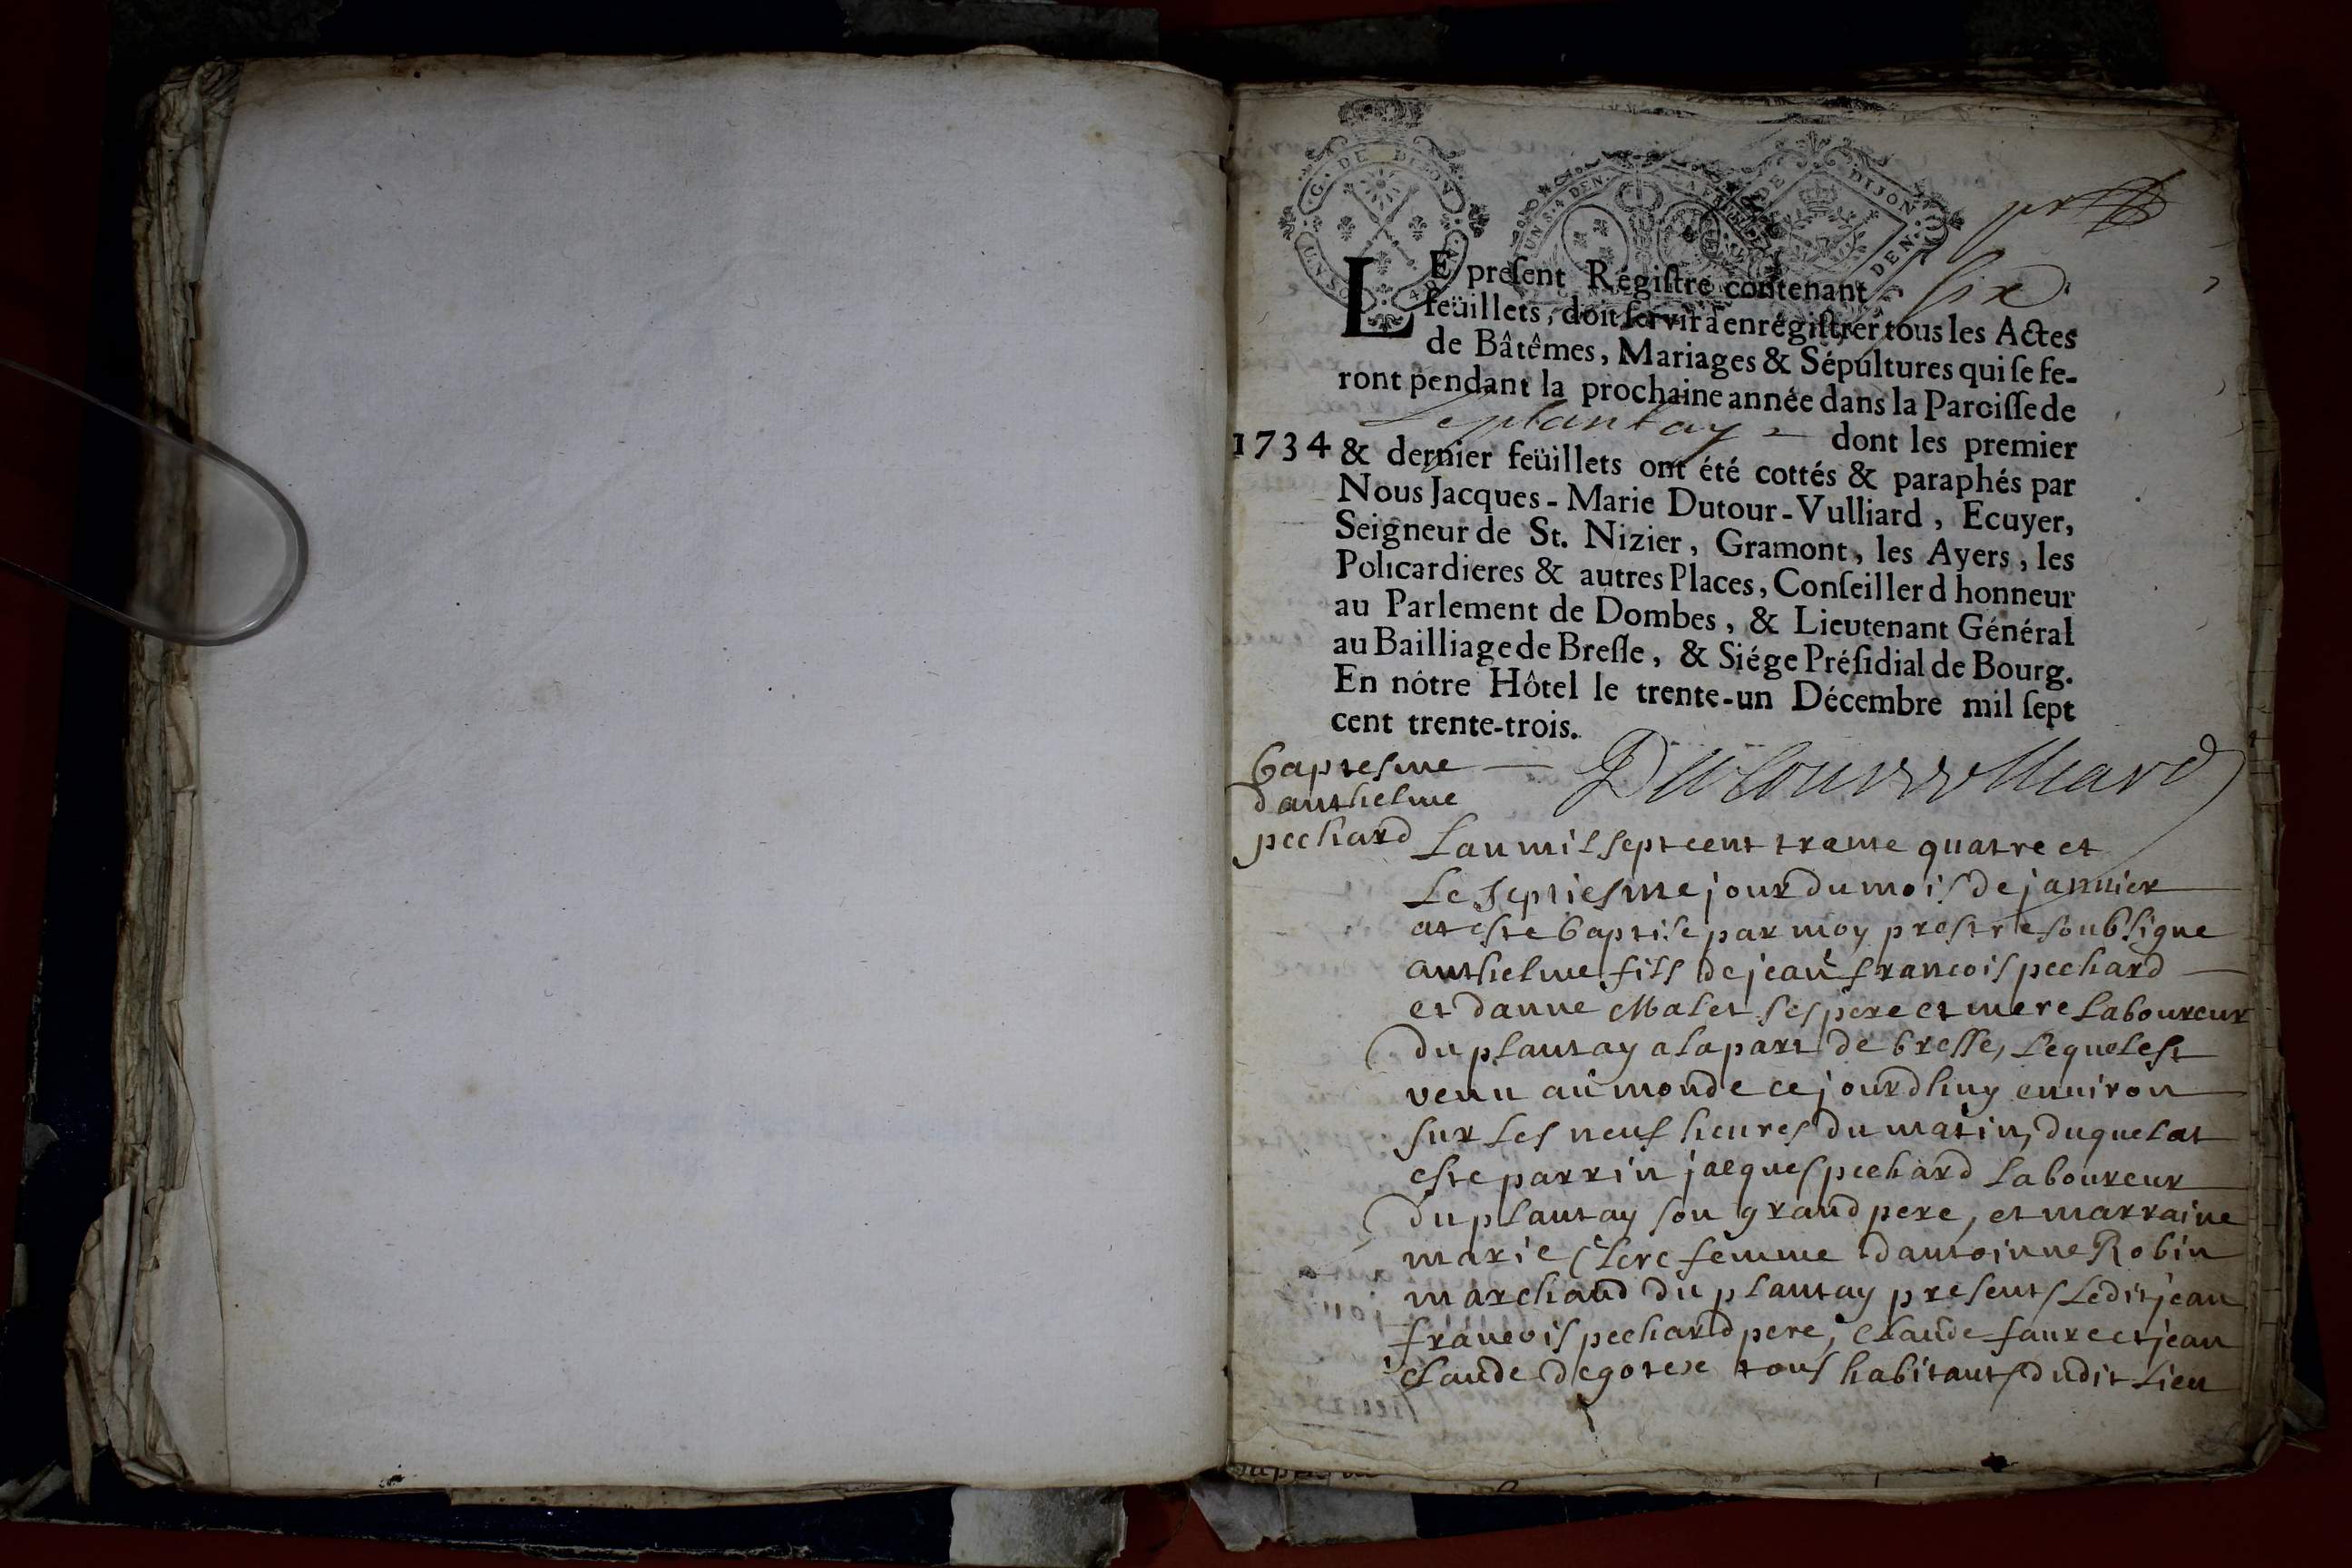 G. DE DIJON
DE DIJON
UN S. 4 DEN.
DEN.
LE preſent Régiſtre contenant six
feüillets, doit ſervir à enrégiſtrer tous les Actes
de Bâtêmes, Mariages & Sépultures qui ſe fe-
ront pendant la prochaine année dans la Paroiſſe de
Le plantay dont les premier
1734 & dernier feüillets ont été cottés & paraphés par
Nous Jacques-Marie Dutour-Vulliard, Ecuyer,
Seigneur de St. Nizier, Gramont, les Ayers, les
Policardieres & autres Places, Conſeiller d honneur
au Parlement de Dombes, & Lieutenant Général
au Bailliage de Breſſe, & Siége Préſidial de Bourg.
En nôtre Hôtel le trente-un Décembre mil ſept
cent trente-trois.
Dutour vulliard
baptesme
d'anthelme
pechard
Lan mil sept cent trante quatre et
Le septiesme jour du mois de janvier
at este baptise par moy prestre soubsigne
anthelme fils de jean francois pechard
et danne Malet ses pere et mere Laboureur
du plantay a la part de bresse, Lequel est
venu au monde ce jourdhuy environ
sur Les neuf heures du matin, duquel at
este parrin jacques pechard Laboureur
du plantay son grand pere, et marraine
marie Clere femme dantoinne Robin
marchand du plantay presents Ledit jean
francois pechard pere, Claude faure et jean
Claude degotex tous habitants dudit Lieu